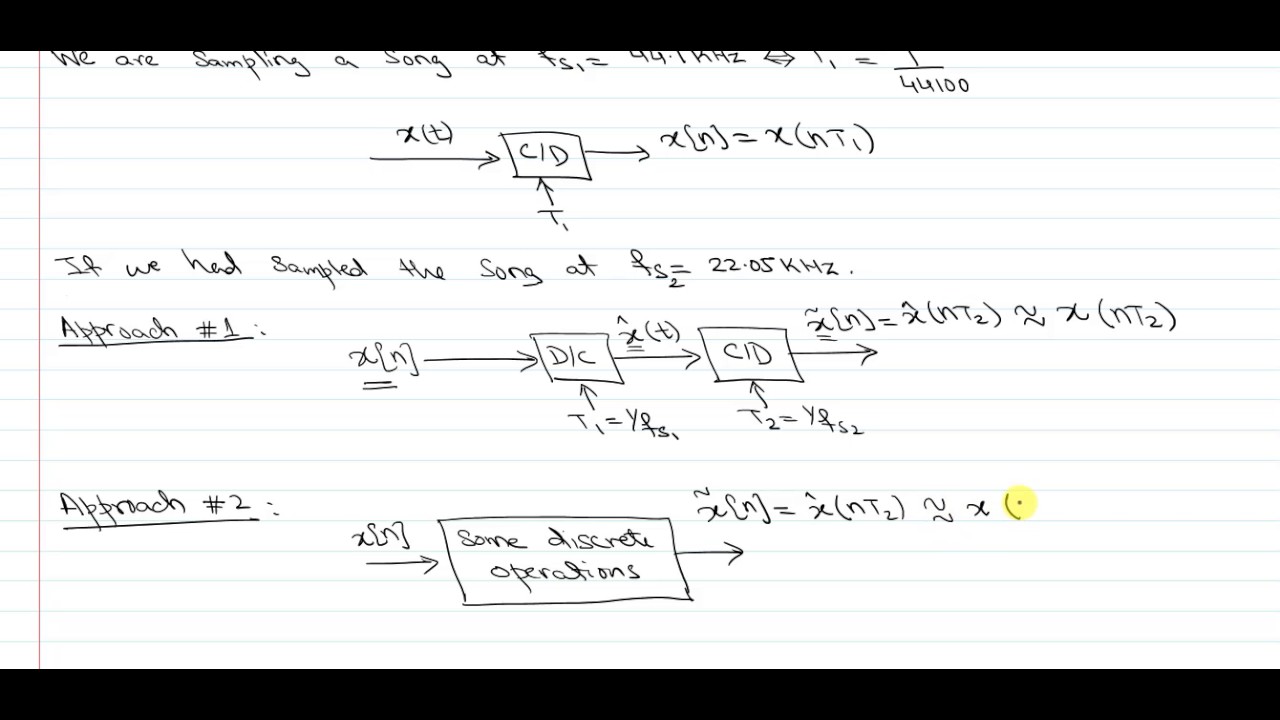 We are Sampling a Song at fs₁ = 44.1KHz ⇔ T₁ = 1/44100
x(t) C/D x[n] = x(nT₁)
T₁
If we had Sampled the Song at fs₂ = 22.05KHz.
Approach #1:
x[n] D/C x̂(t) C/D x̃[n] = x̂(nT₂) ≈ x(nT₂)
T₁ = 1/fs₁ T₂ = 1/fs₂
Approach #2:
x[n] Some discrete operations x̃[n] = x̂(nT₂) ≈ x (